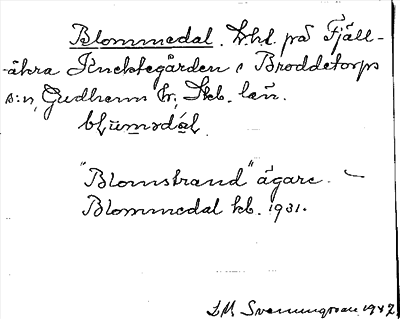 Blommedal. Lht. på Fjäll-
åkra Knektegården i Broddetorps
s:n, Gudhems hr; Skb. län.
"Blomstrand" ägare.
Blommedal kb. 1931.
LM Svenungsson 1942